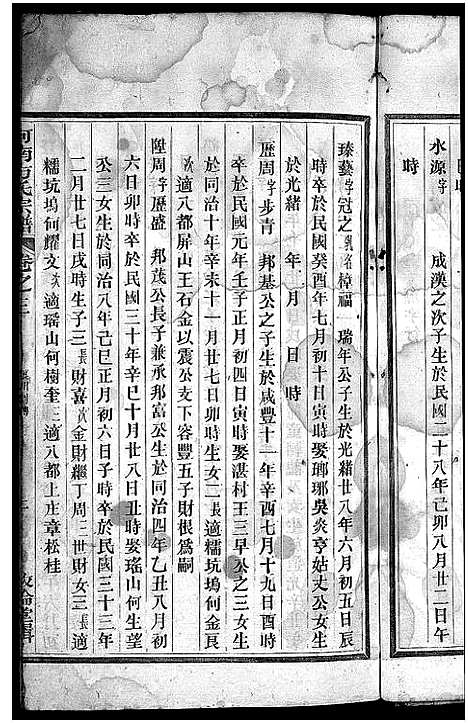 水源字　成漢之次子生於民國二十八年己卯八月二十二日午
時
臻藝字冠之乳名樟福　瑞年公子生於光緒廿八年六月初五日辰
時卒於民國癸酉年七月初十日寅時娶瑯琊吳炎亨姑丈公女生
於光緒　年　月　日　時
歷周字步青　邦基公之子生於咸豐十一年辛酉七月十九日酉時
卒於民國元年壬子正月初四日寅時娶湛村王三早公之三女生
於同治十年辛未十一月廿七日卯時生女二長適糯坑塢何金長
次適八都屏山王石金以震公支下容豐五子財根為嗣
陞周字歷盛　邦茂公長子兼承邦富公生於同治四年乙丑八月初
六日卯時卒於民國三十年辛巳十月廿八日丑時娶瑤山何生望
公三女生於同治八年己巳正月初六日子時卒於民國三十三年
二月廿七日戌時生子三長財喜次金財繼丁周三世財女三長適
糯坑塢何耀文次適瑤山何樹奎三適八都上庄章松桂
河南方氏宗譜　卷之三
敦倫堂輯